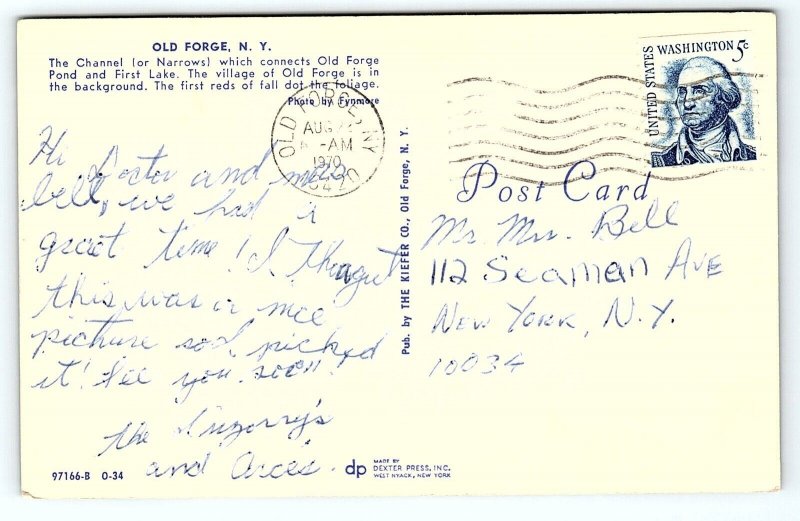 OLD FORGE, N. Y.
The Channel (or Narrows) which connects Old Forge
Pond and First Lake. The village of Old Forge is in
the background. The first reds of fall dot the foliage.
Photo by Fynmore
OLD FORGE, NY
AUG
AM
1970
13420
UNITED STATES
WASHINGTON 5c
Hi Doctor and mrs
bell, we had a
great time! I thought
this was a nice
picture so I picked
it! See you soon!
the
and Arces.
Pub. by THE KIEFER CO., Old Forge, N. Y.
Post Card
Mr. Mrs. Bell
112 Seaman AVE
NEW YORK, N.Y.
10034
97166-B O-34
dp
MADE BY
DEXTER PRESS, INC.
WEST NYACK, NEW YORK